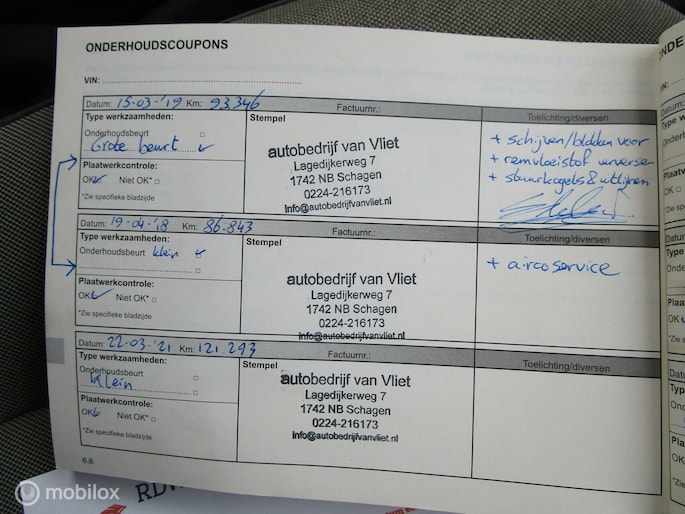 ONDERHOUDSCOUPONS
VIN:
Datum: 15-03-'19 Km: 93.346 Factuurnr.: Toelichting/diversen
Type werkzaamheden:
Onderhoudsbeurt
Grote beurt
Plaatwerkcontrole:
OK Niet OK*
*Zie specifieke bladzijde
Stempel
autobedrijf van Vliet
Lagedijkerweg 7
1742 NB Schagen
0224-216173
Info@autobedrijfvanvliet.nl
+ schijven/blokken voor
+ remvloeistof verversen
+ stuurkogels & uitlijnen
Datum: 19-04-'18 Km: 86.843 Factuurnr.: Toelichting/diversen
Type werkzaamheden:
Onderhoudsbeurt klein
Plaatwerkcontrole:
OK Niet OK*
*Zie specifieke bladzijde
Stempel
autobedrijf van Vliet
Lagedijkerweg 7
1742 NB Schagen
0224-216173
info@autobedrijfvanvliet.nl
+ aircoservice
Datum: 22-03-'21 Km: 121.293 Factuurnr.: Toelichting/diversen
Type werkzaamheden:
Onderhoudsbeurt
Klein
Plaatwerkcontrole:
OK Niet OK*
*Zie specifieke bladzijde
Stempel
autobedrijf van Vliet
Lagedijkerweg 7
1742 NB Schagen
0224-216173
Info@autobedrijfvanvliet.nl
6.8
mobilox
RDW